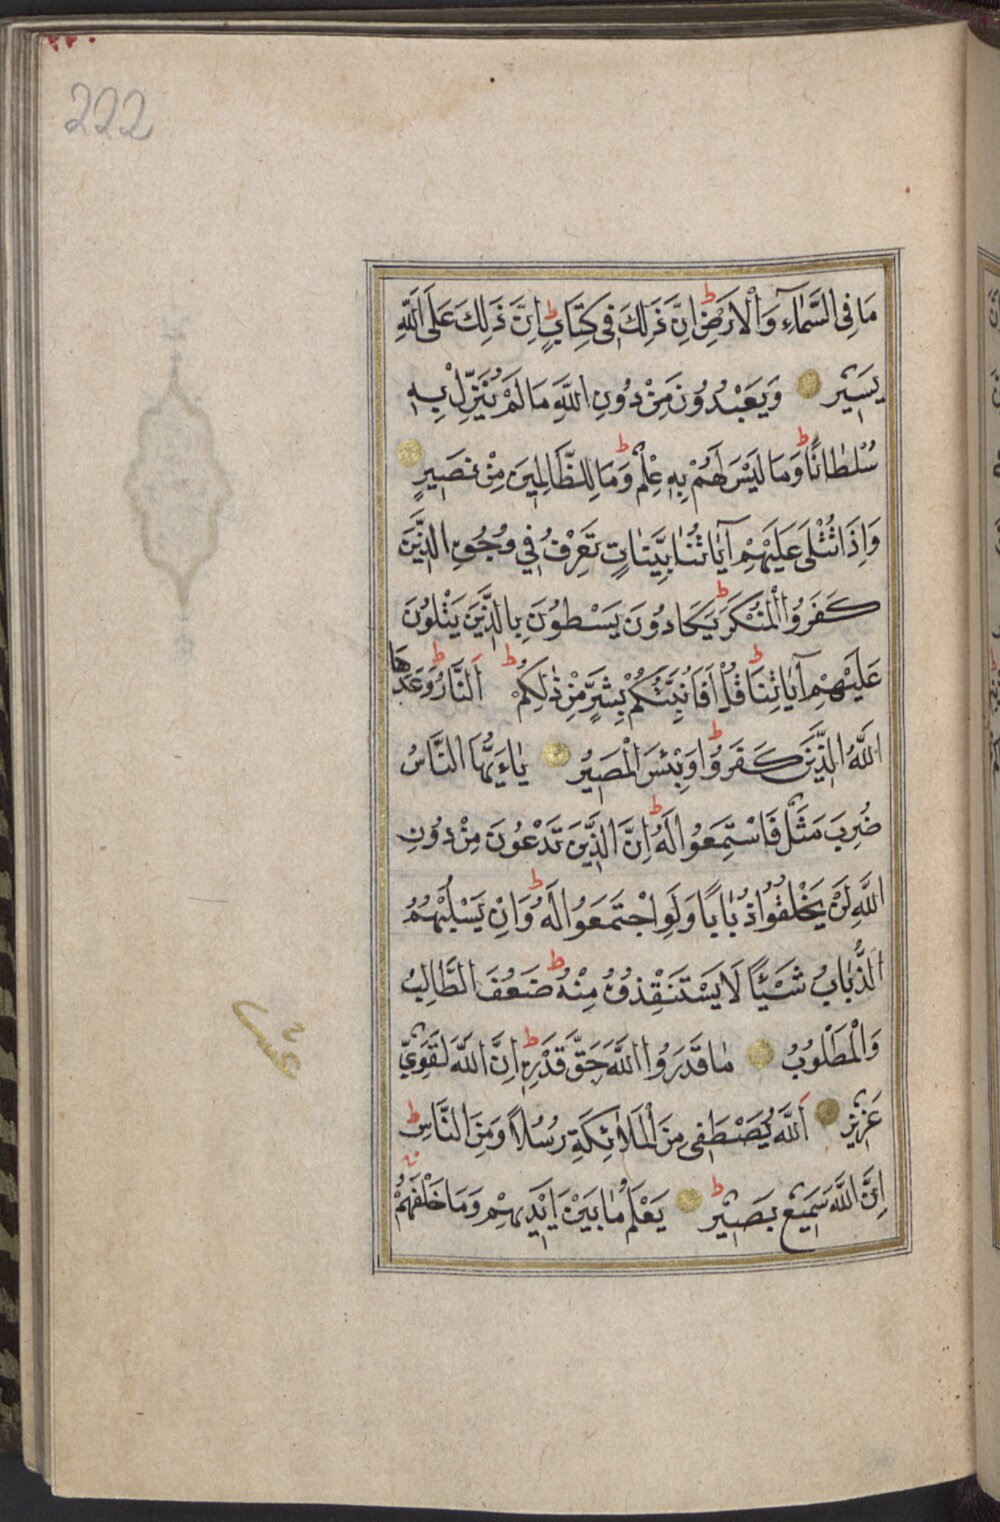 222
مَا فِى السَّمَآءِ وَالْاَرْضِ ط اِنَّ ذٰلِكَ فِى كِتَابٍ ط اِنَّ ذٰلِكَ عَلَى اللّٰهِ
يَسِيرٌ وَيَعْبُدُونَ مِنْ دُونِ اللّٰهِ مَا لَمْ يُنَزِّلْ بِهِ
سُلْطَانًا وَمَا لَيْسَ لَهُمْ بِهِ عِلْمٌ ط وَمَا لِلظَّالِمِينَ مِنْ نَصِيرٍ
وَاِذَا تُتْلٰى عَلَيْهِمْ آيَاتُنَا بَيِّنَاتٍ تَعْرِفُ فِي وُجُوهِ الَّذِينَ
كَفَرُوا الْمُنْكَرَ ط يَكَادُونَ يَسْطُونَ بِالَّذِينَ يَتْلُونَ
عَلَيْهِمْ آيَاتِنَا ط قُلْ اَفَاُنَبِّئُكُمْ بِشَرٍّ مِنْ ذٰلِكُمْ ط اَلنَّارُ ط وَعَدَهَا
اللّٰهُ الَّذِينَ كَفَرُوا ط وَبِئْسَ الْمَصِيرُ يَاءَيُّهَا النَّاسُ
ضُرِبَ مَثَلٌ فَاسْتَمِعُوا لَهُ ط اِنَّ الَّذِينَ تَدْعُونَ مِنْ دُونِ
اللّٰهِ لَنْ يَخْلُقُوا ذُبَابًا وَلَوِ اجْتَمَعُوا لَهُ ط وَاِنْ يَسْلُبْهُمُ
الذُّبَابُ شَيْئًا لَا يَسْتَنْقِذُوهُ مِنْهُ ط ضَعُفَ الطَّالِبُ
وَالْمَطْلُوبُ مَا قَدَرُوا اللّٰهَ حَقَّ قَدْرِهِ ط اِنَّ اللّٰهَ لَقَوِيٌّ
عَزِيزٌ اَللّٰهُ يَصْطَفِى مِنَ الْمَلَائِكَةِ رُسُلًا وَمِنَ النَّاسِ ط
اِنَّ اللّٰهَ سَمِيعٌ بَصِيرٌ ط يَعْلَمُ مَا بَيْنَ اَيْدِيهِمْ وَمَا خَلْفَهُمْ